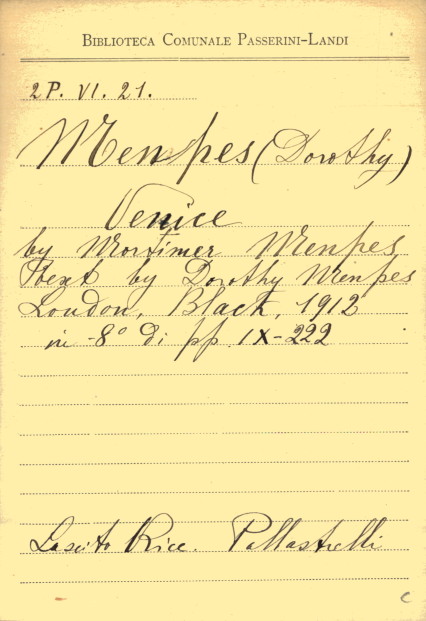 BIBLIOTECA COMUNALE PASSERINI-LANDI
2P. VI. 21.
Menpes (Dorothy)
Venice
by Mortimer Menpes
Text by Dorothy Menpes
London, Black, 1912
in-8° di pp. IX-222
Lascito Ricc. Pallastrelli
C